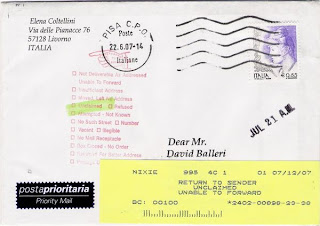 Elena Coltellini
Via delle Pianacce 76
57128 Livorno
ITALIA
PISA C.P.O.
Poste
22.6.07-14
Italiane
ITALIA
€ 0,65
Not Deliverable As Addressed
Unable To Forward
Insufficient Address
Moved, Left No Address
Unclaimed Refused
Attempted - Not Known
No Such Street Number
Vacant Illegible
No Mail Receptacle
Box Closed - No Order
JUL 21 A.M.
Dear Mr.
David Balleri
postaprioritaria
Priority Mail
NIXIE 995 4C 1 01 07/12/07
RETURN TO SENDER
UNCLAIMED
UNABLE TO FORWARD